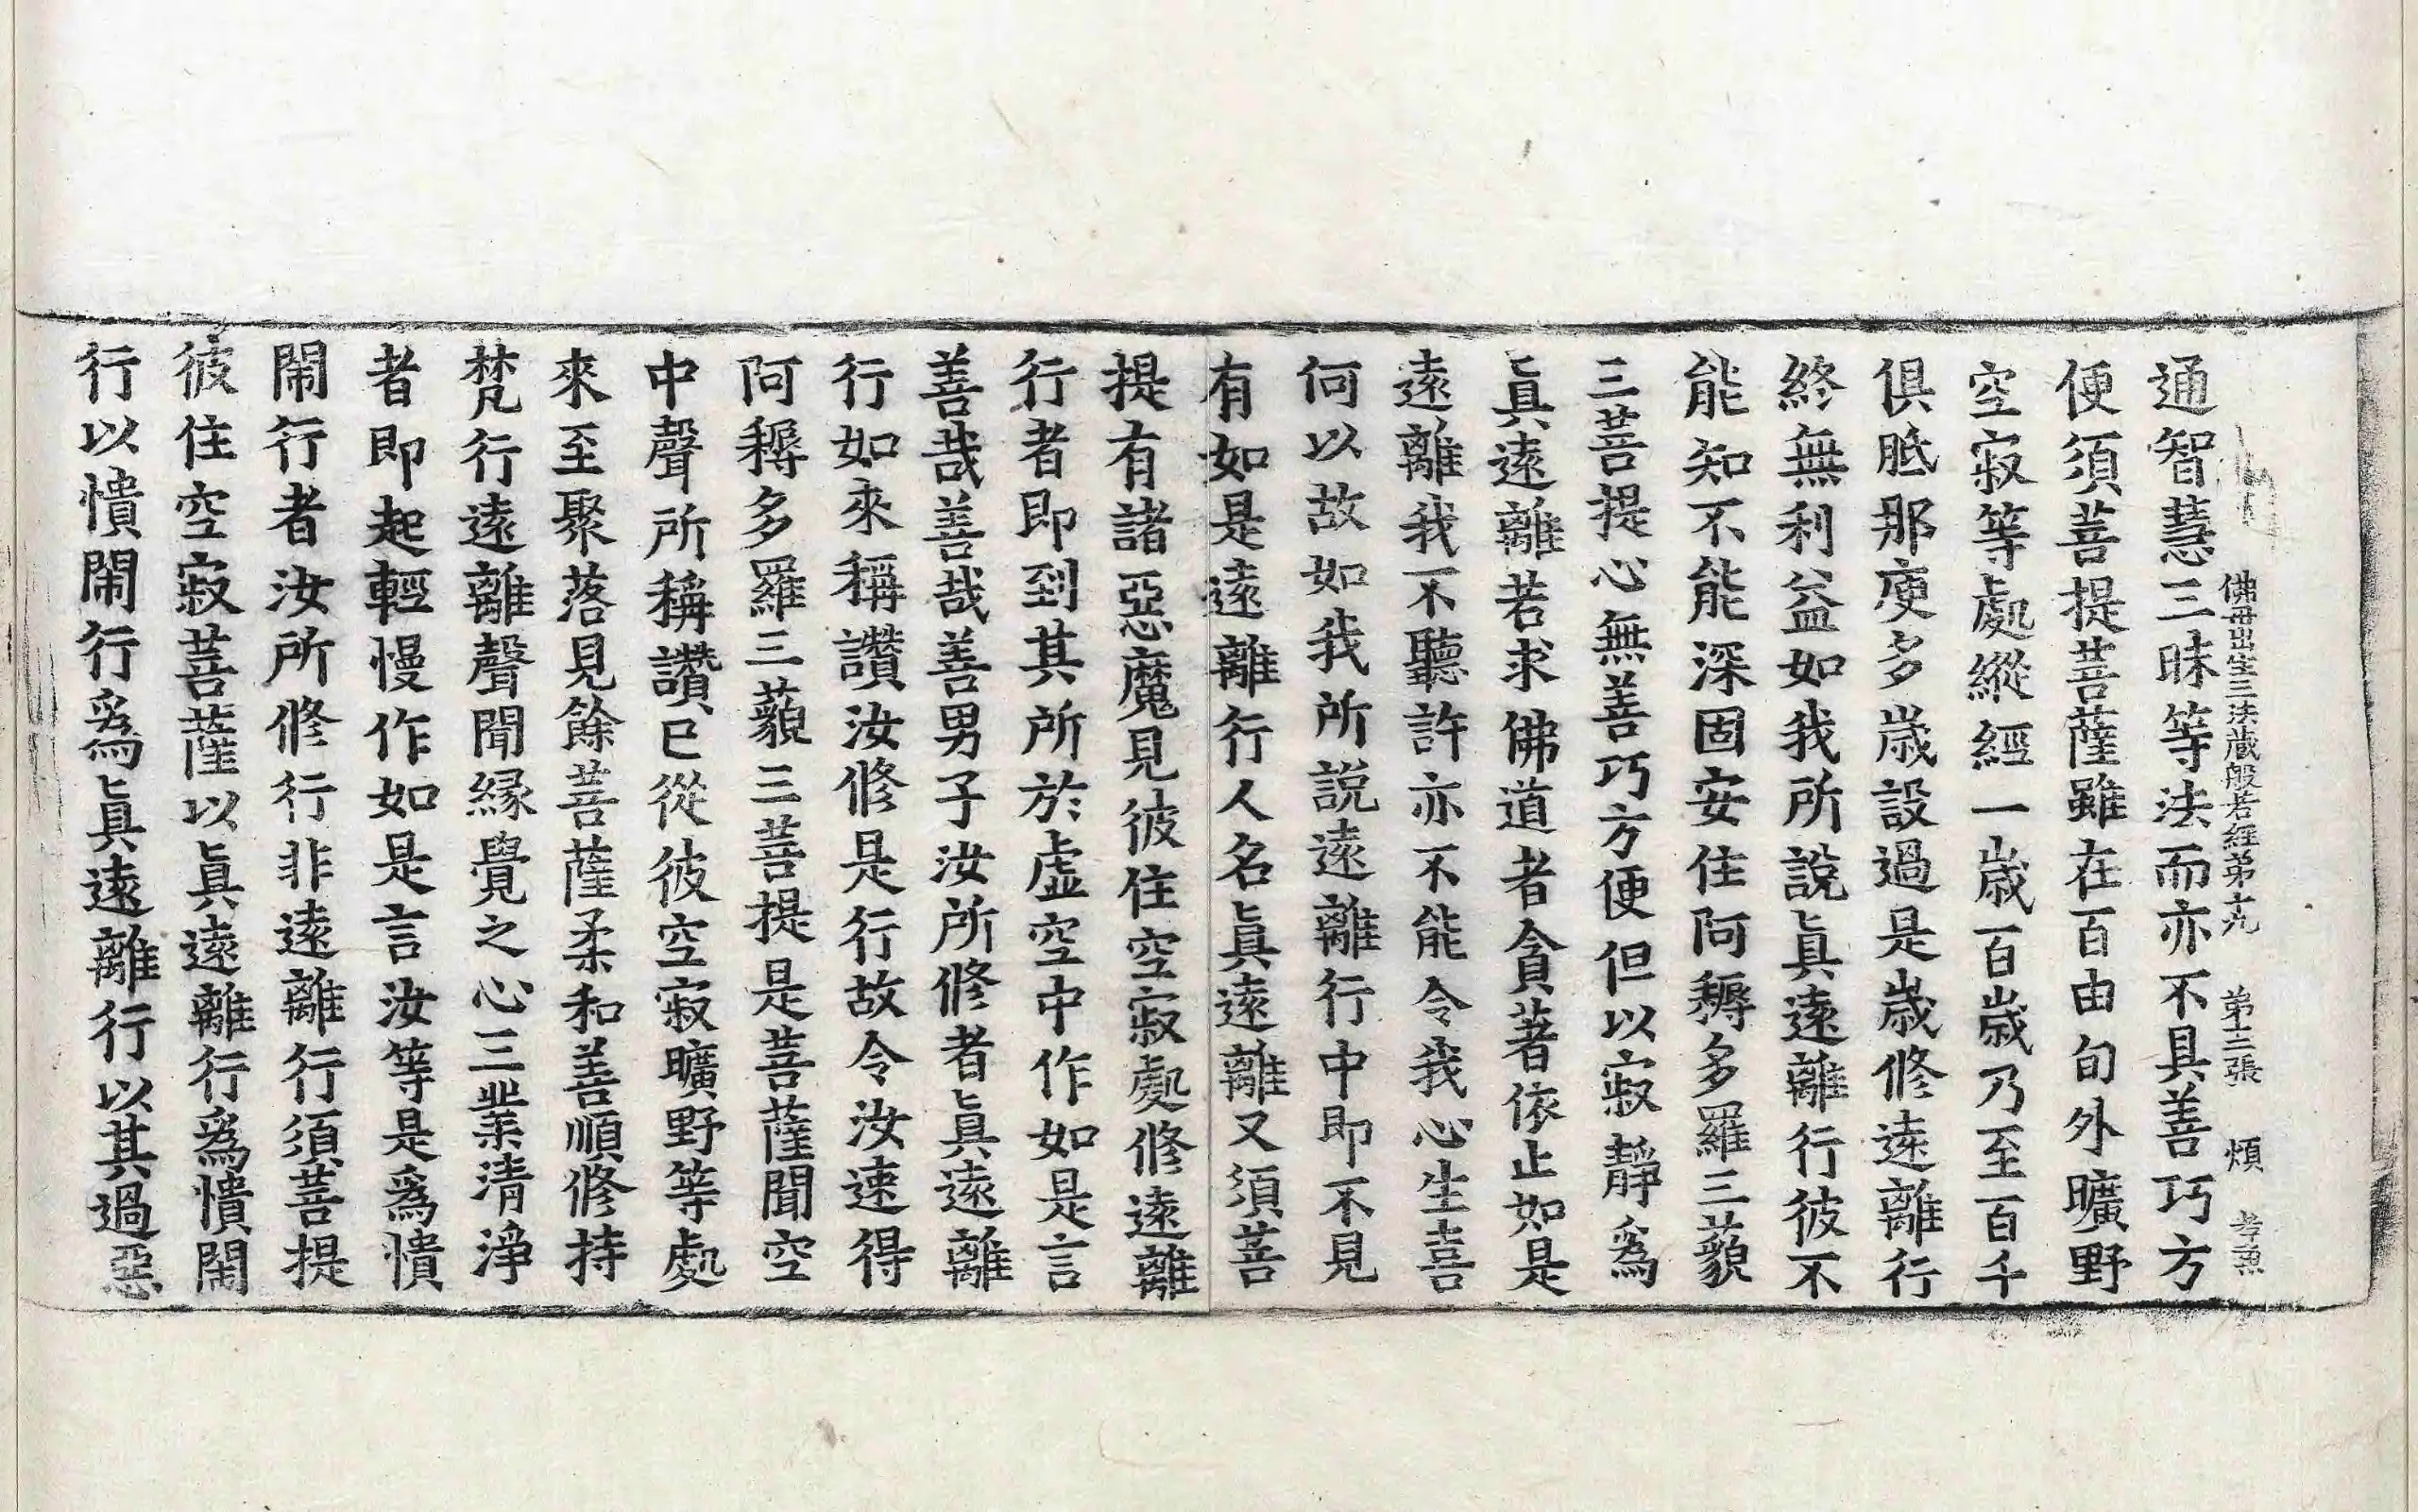 佛母出生三法藏般若經第十九 第十三張 煩 孝兼
通智慧三昧等法而亦不具善巧方
便須菩提菩薩雖在百由旬外曠野
空寂等處縱經一歲百歲乃至百千
俱胝那庾多歲設過是歲修遠離行
終無利益如我所說眞遠離行彼不
能知不能深固安住阿耨多羅三藐
三菩提心無善巧方便但以寂靜爲
眞遠離若求佛道者貪著依止如是
遠離我不聽許亦不能令我心生喜
何以故如我所說遠離行中卽不見
有如是遠離行人名眞遠離又須菩
提有諸惡魔見彼住空寂處修遠離
行者卽到其所於虛空中作如是言
善哉善哉善男子汝所修者眞遠離
行如來稱讚汝修是行故令汝速得
阿耨多羅三藐三菩提是菩薩聞空
中聲所稱讚已從彼空寂曠野等處
來至聚落見餘菩薩柔和善順修持
梵行遠離聲聞緣覺之心三業清淨
者卽起輕慢作如是言汝等是爲憒
閙行者汝所修行非遠離行須菩提
彼住空寂菩薩以眞遠離行爲憒閙
行以憒閙行爲眞遠離行以其過惡